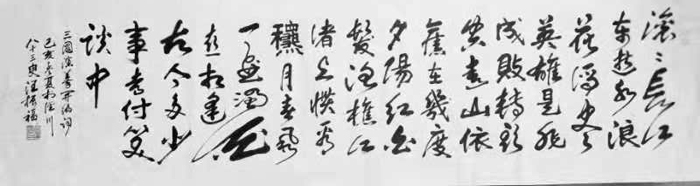 滚〻長江
東逝水浪
花淘尽
英雄是非
成敗轉頭
空青山依
舊在幾度
夕陽紅白
髮漁樵江
渚上惯看
穐月春風
一壺濁酒
喜相逢
古今多少
事都付笑
談中
三國演義開篇詞
己亥夏川
八十三叟汪振福